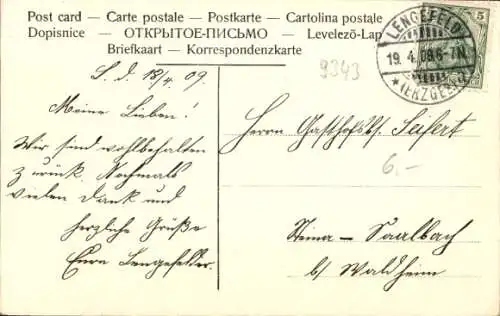 Post card — Carte postale — Postkarte — Cartolina postale
Dopisnice — ОТКРЫТОЕ-ПИСЬМО — Levelező-Lap
Briefkaart — Korrespondenzkarte
LENGEFELD
19. 4. 09. 6-7N.
* (ERZGEB.)
5
9343
S. d. 18/4. 09.
Meine Lieben!
Wir sind wohlbehalten
zurück. Nochmals
vielen Dank und
herzliche Grüße
Eure Lengefelder.
Herrn Gasthofsbs. Seifert
6.-
Steina — Saalbach
b/ Waldheim